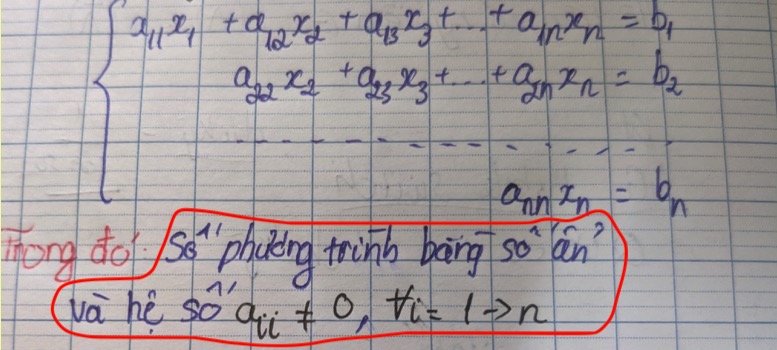 a₁₁x₁ + a₁₂x₂ + a₁₃x₃ + ... + a₁ₙxₙ = b₁
a₂₂x₂ + a₂₃x₃ + ... + a₂ₙxₙ = b₂
- - - - - - - - - - - - - - -
aₙₙxₙ = bₙ
Trong đó: Số phương trình bằng số ẩn
và hệ số aᵢᵢ ≠ 0, ∀i = 1 → n